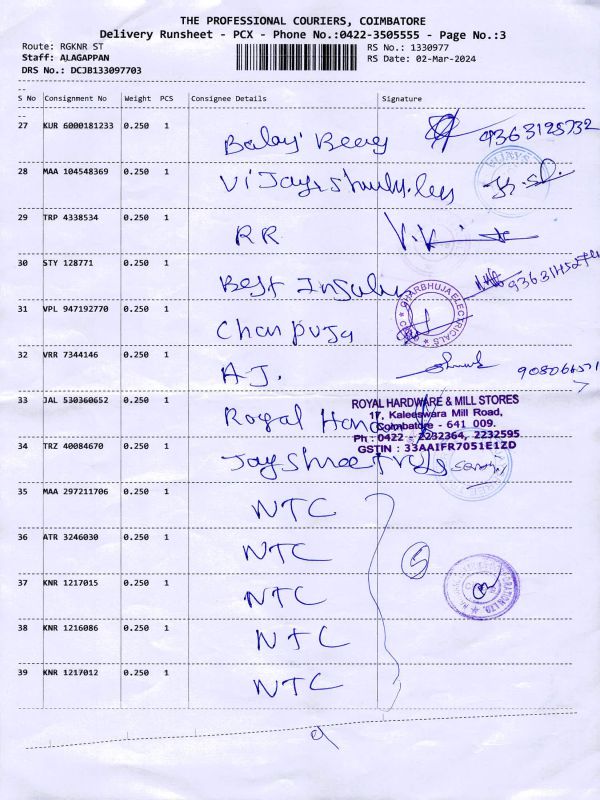 THE PROFESSIONAL COURIERS, COIMBATORE
Delivery Runsheet - PCX - Phone No.:0422-3505555 - Page No.:3
Route: RGKNR ST RS No.: 1330977
Staff: ALAGAPPAN RS Date: 02-Mar-2024
DRS No.: DCJB133097703
S No Consignment No Weight PCS Consignee Details Signature
27 KUR 6000181233 0.250 1
9363125732
28 MAA 104548369 0.250 1
29 TRP 4338534 0.250 1 RR
30 STY 128771 0.250 1 Best
31 VPL 947192770 0.250 1
CHARBHUJA ELECTRICALS
32 VRR 7344146 0.250 1 A.J.
33 JAL 530360652 0.250 1 Royal
ROYAL HARDWARE & MILL STORES
17, Kaleeswara Mill Road,
Coimbatore - 641 009.
Ph : 0422 - 2232364, 2232595
GSTIN : 33AAIFR7051E1ZD
34 TRZ 40084670 0.250 1 Jayshree
35 MAA 297211706 0.250 1 NTC
36 ATR 3246030 0.250 1 NTC
5
37 KNR 1217015 0.250 1 NTC
38 KNR 1216086 0.250 1 NTC
39 KNR 1217012 0.250 1 NTC